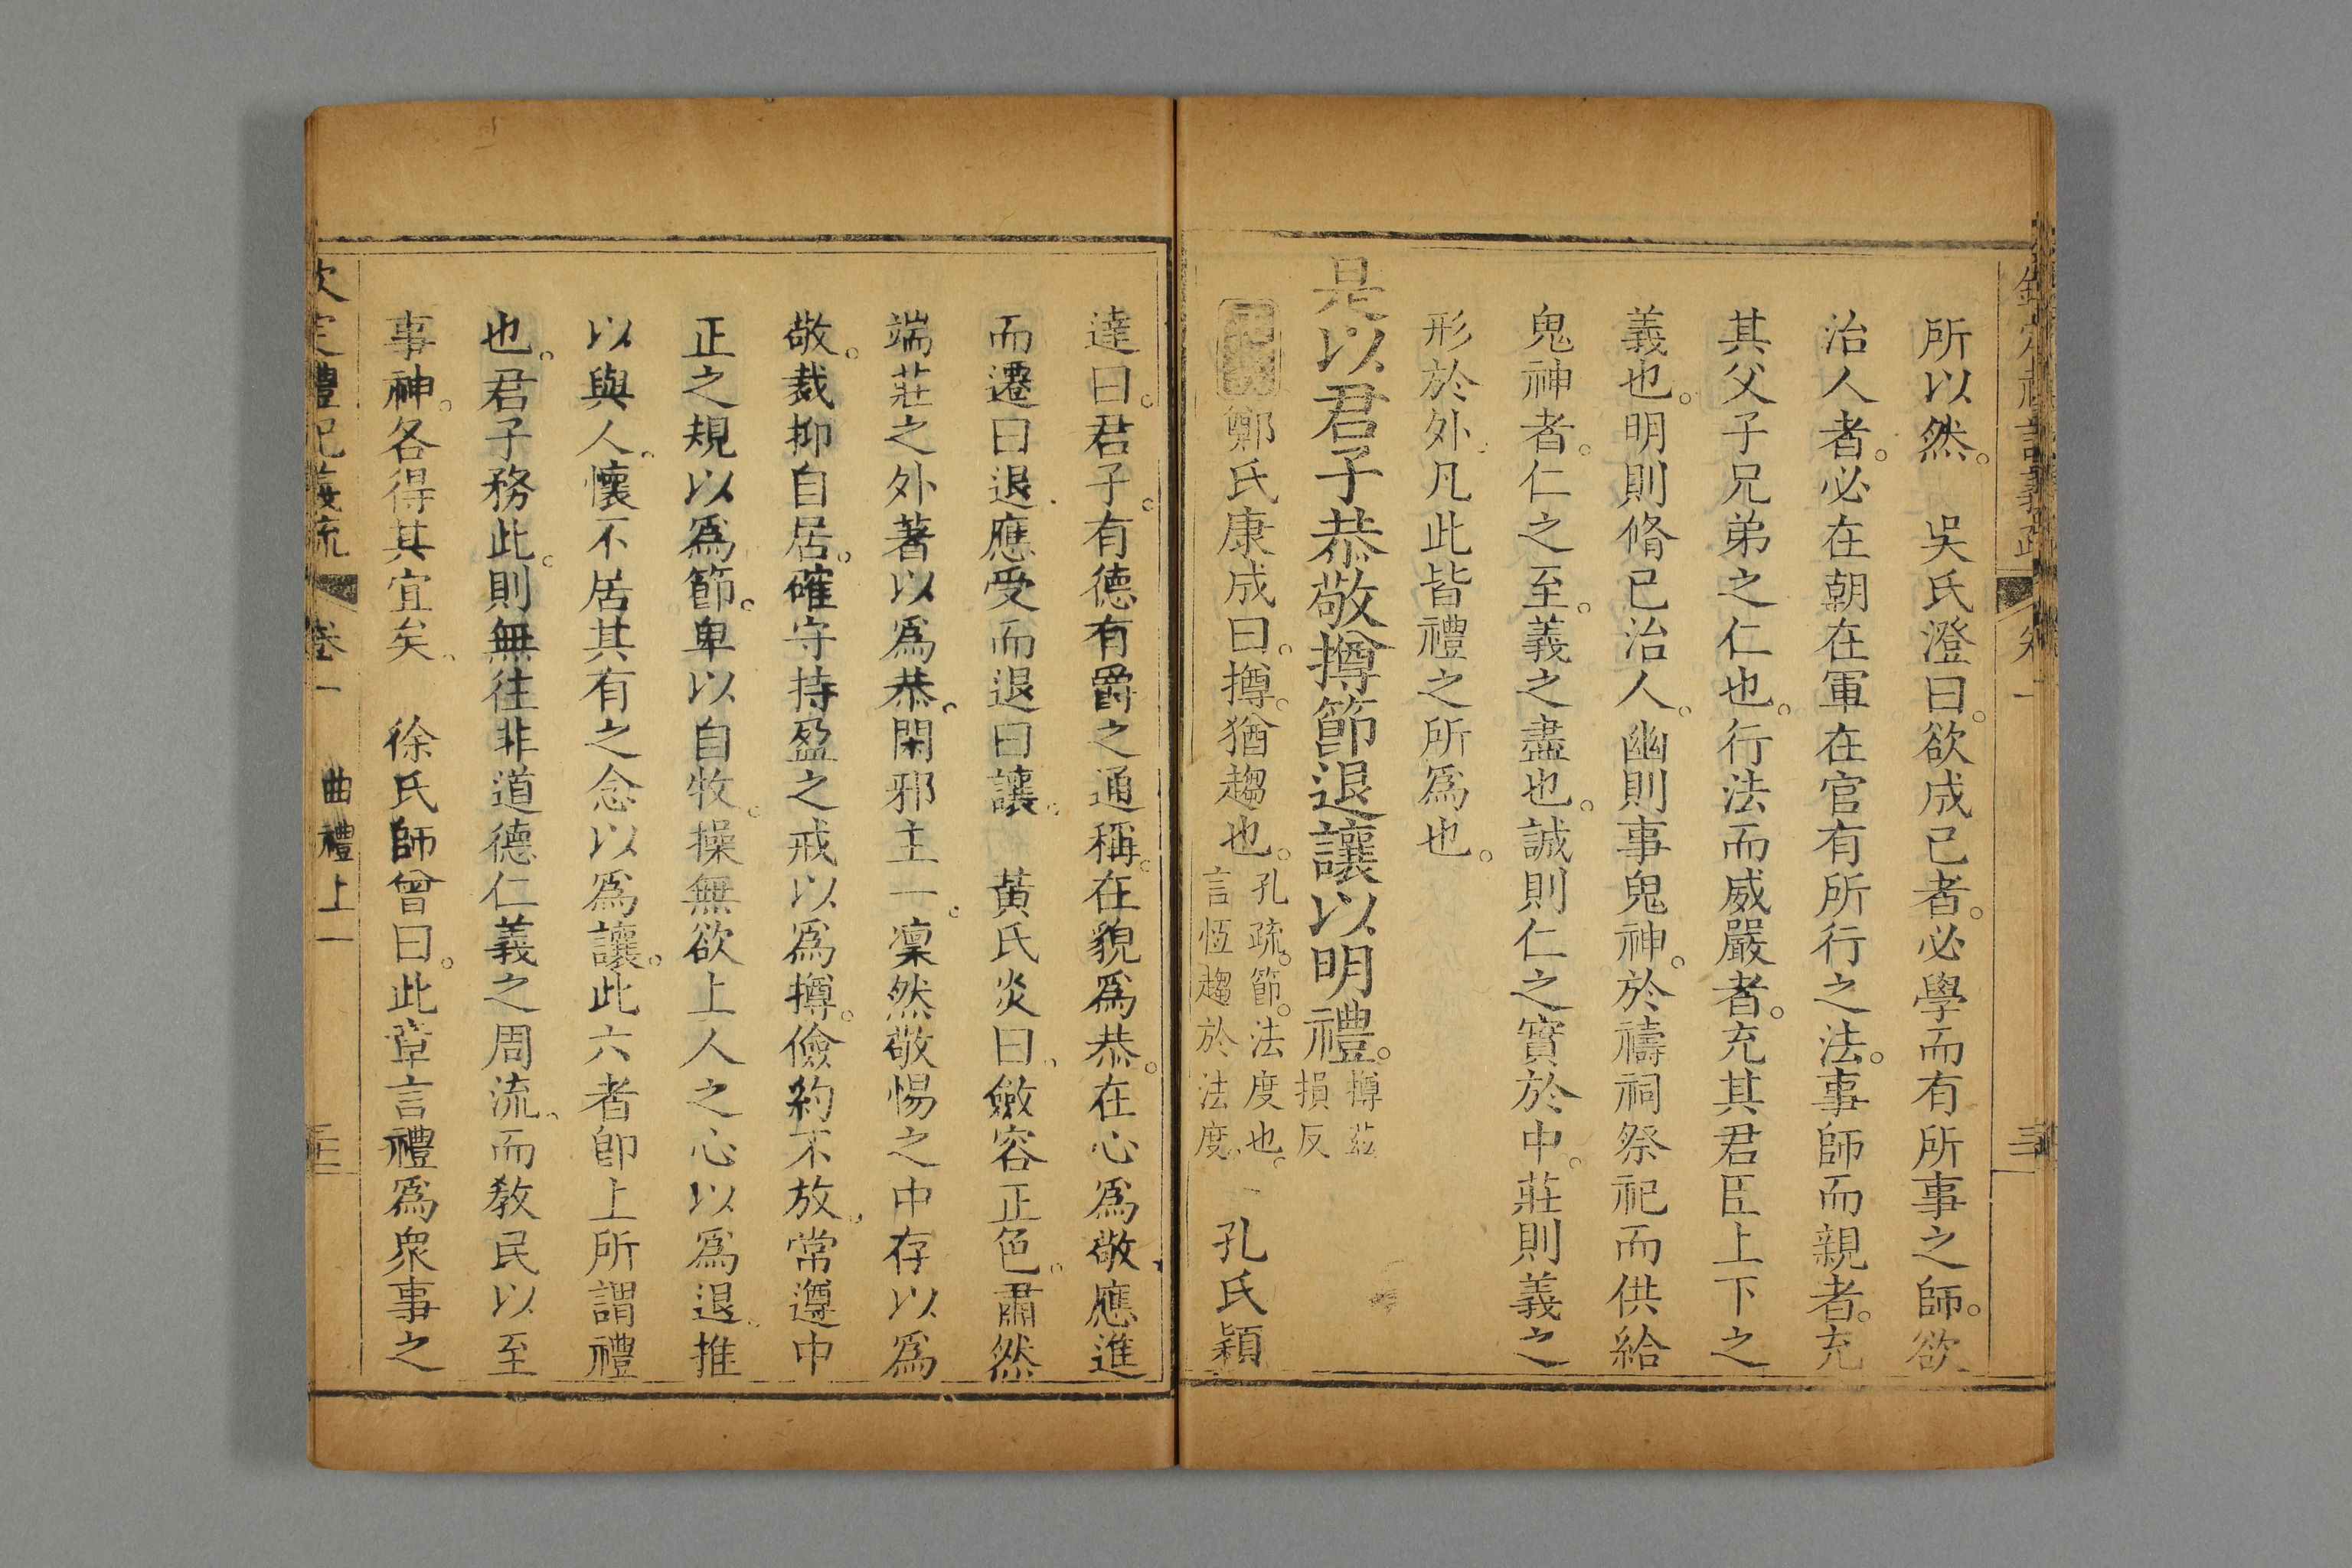 所以然。　吳氏澄曰。欲成己者。必學而有所事之師。欲
治人者。必在朝在軍在官有所行之法。事師而親者。充
其父子兄弟之仁也。行法而威嚴者。充其君臣上下之
義也。明則脩己治人。幽則事鬼神。於禱祠祭祀而供給
鬼神者。仁之至。義之盡也。誠則仁之實於中。莊則義之
形於外。凡此皆禮之所爲也。
是以君子恭敬撙節退讓以明禮。撙茲損反
鄭氏康成曰。撙。猶趨也。孔疏。節。法度也。言恆趨於法度。　孔氏穎
達曰。君子。有德有爵之通稱。在貌爲恭。在心爲敬應進
而遷曰退。應受而退曰讓。　黃氏炎曰。斂容正色。肅然
端莊之外著以爲恭。閑邪主一。凜然敬惕之中存以爲
敬。裁抑自居。確守持盈之戒以爲撙。儉約不放。常遵中
正之規以爲節。卑以自牧。操無欲上人之心以爲退。推
以與人。懷不居其有之念以爲讓。此六者卽上所謂禮
也。君子務此。則無往非道德仁義之周流。而教民以至
事神。各得其宜矣。　徐氏師曾曰。此章言禮爲衆事之
欽定禮記義疏　卷一　曲禮上一